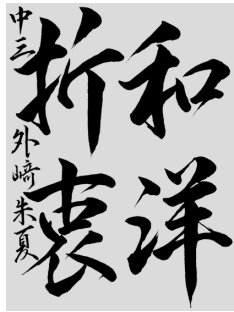 和洋
折衷
中三 外﨑朱夏